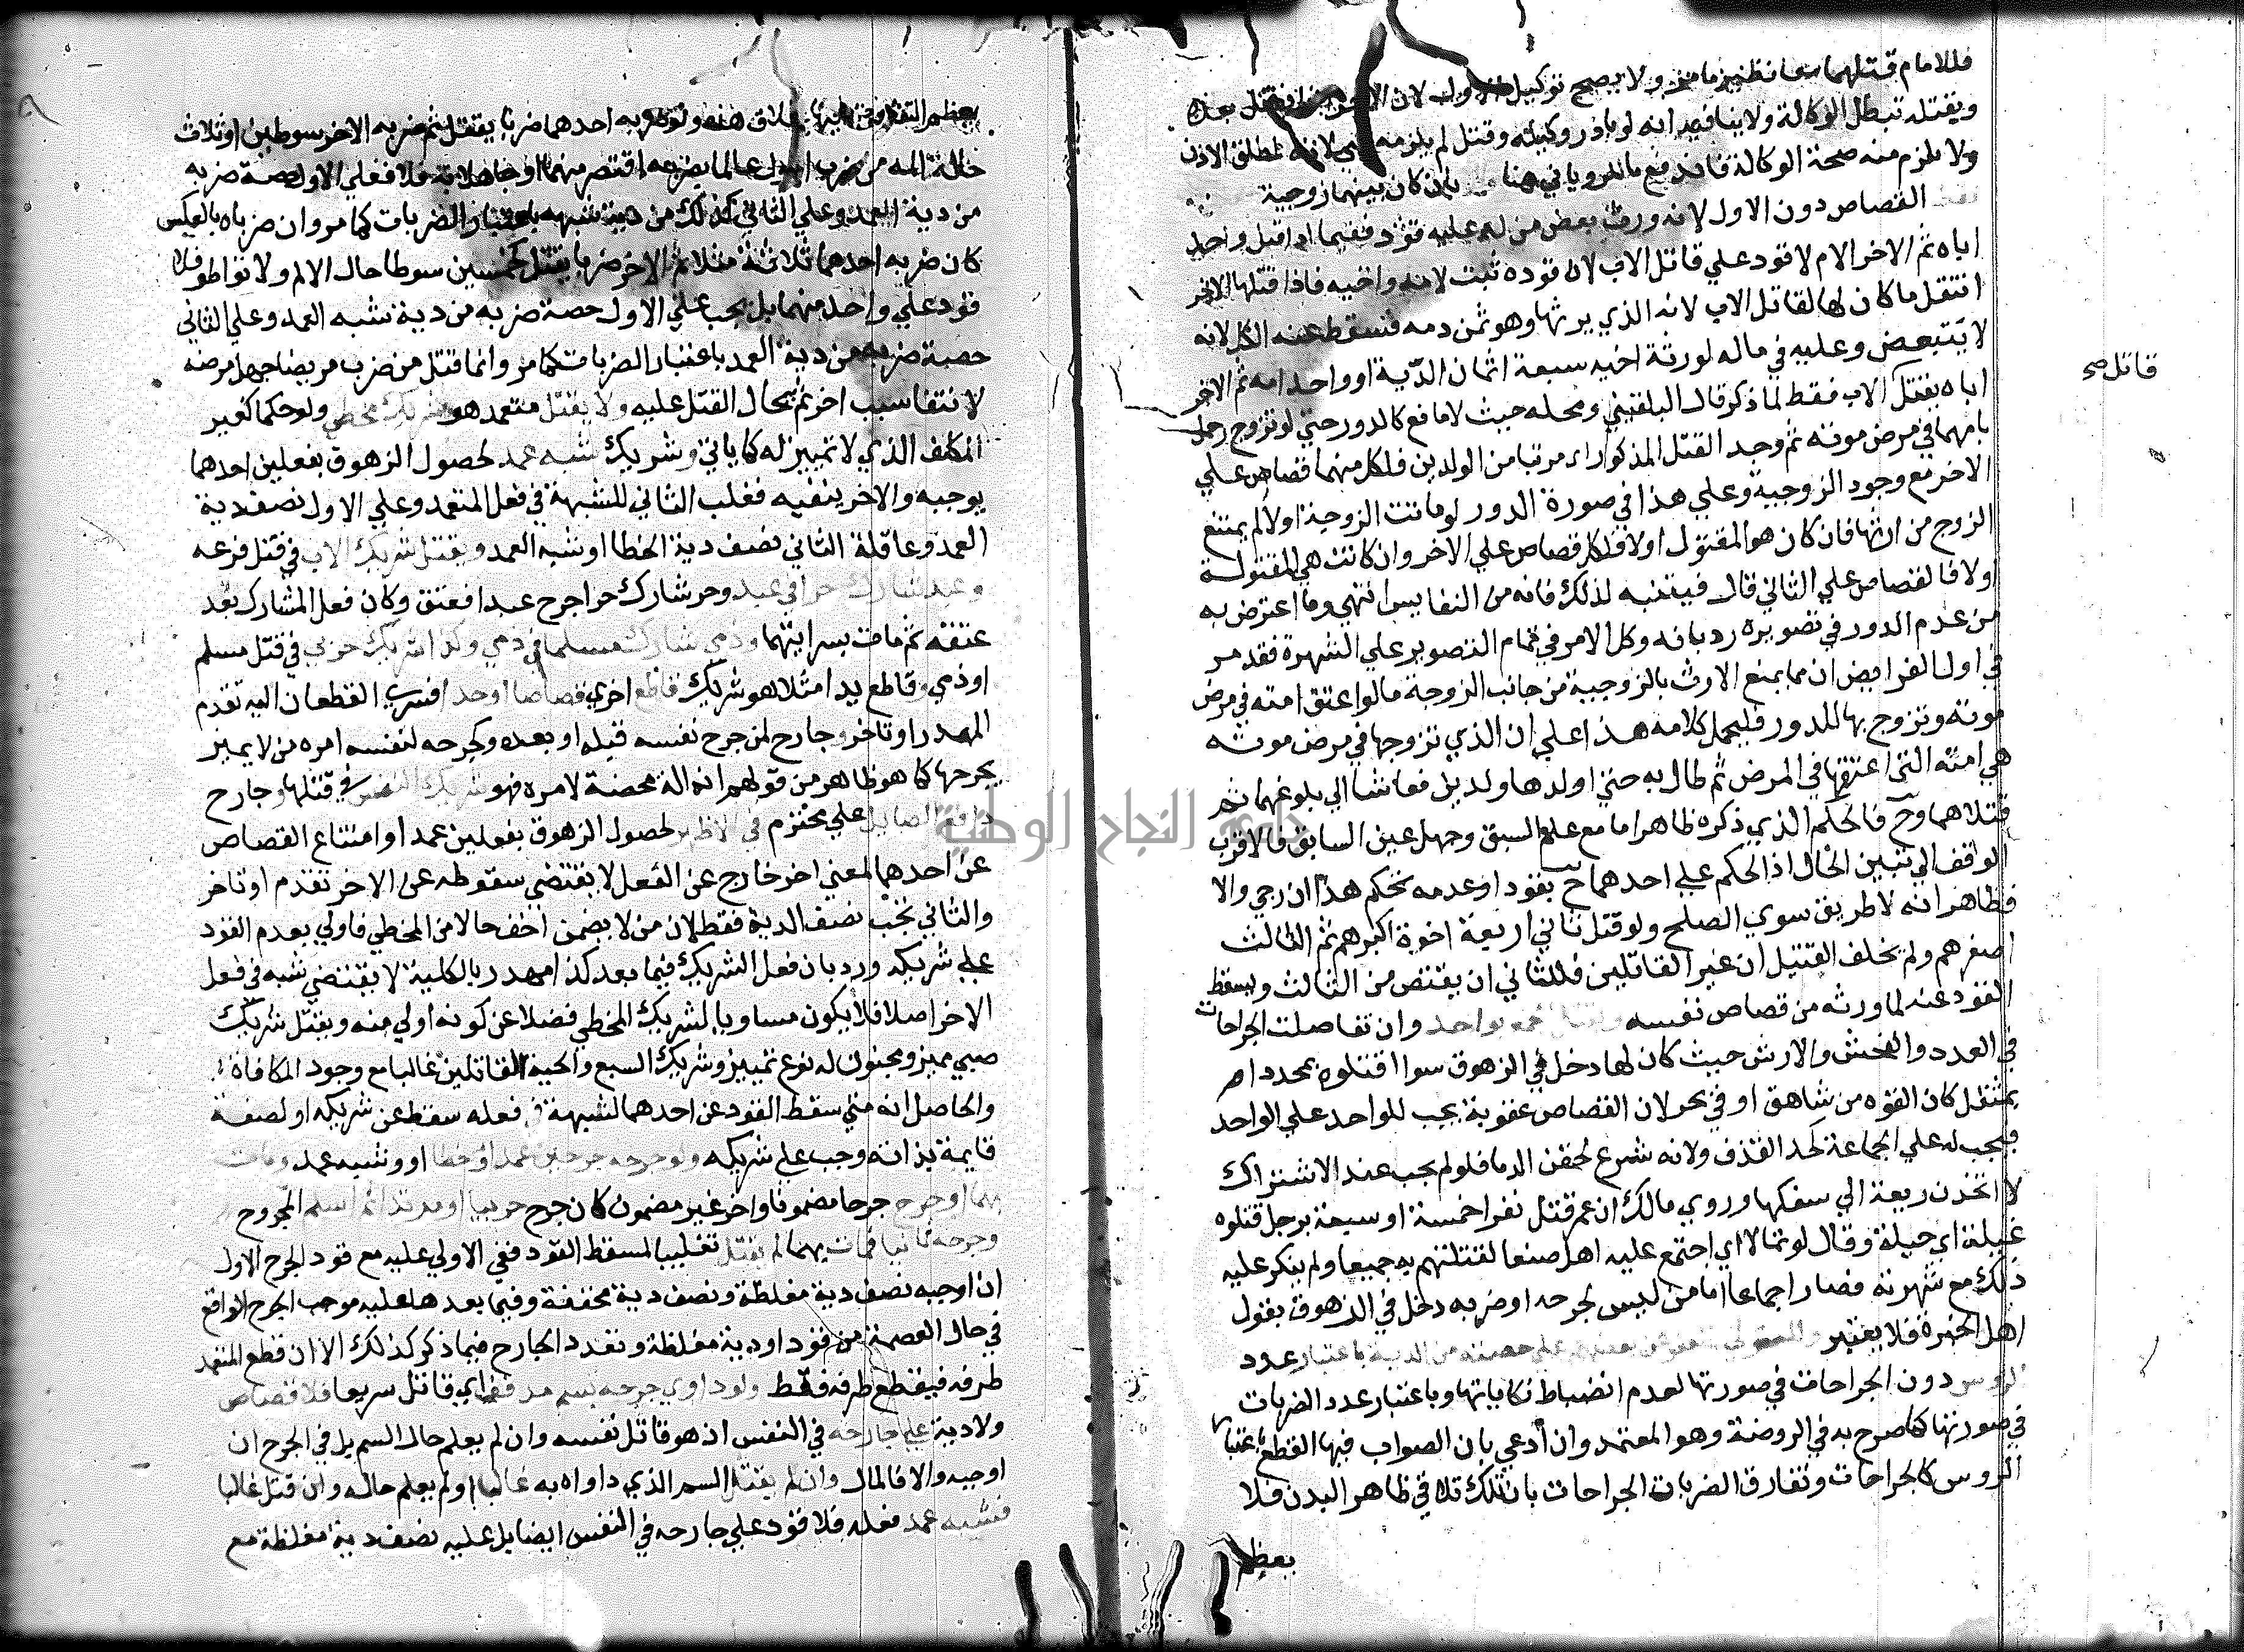 فللامام قتلهما معا نظير ما مر ولا يصح توكيل الاول لان
ويقتله تبطل الوكالة ولا ينافيه انه لو بادر وكيله وقتل لم يلزمه شي لانه لمطلق الاذن
ولا يلزم منه صحة الوكالة فاندفع ما للروياني هنا بان كان بينهما زوجية
القصاص دون الاول لانه ورث بعض من له عليه قود ففيما اذا قتل واحد
اباه ثم الاخر الام لا قود علي قاتل الاب لان قوده ثبت لامه واخيه فاذا قتلها الاخر
انتقل ما كان لها لقاتل الاب لانه الذي يرثها وهو ثمن دمه فسقط عنه الكل لانه
لا يتبعض وعليه في ماله لورثة اخيه سبعة اثمان الدية او واحد امه ثم الاخر
قاتل صح
اباه يقتل الاب فقط لما ذكر قال البلقيني ومحله حيث لا مانع كالدور حتي لو تزوج رجل
بامهما في مرض موته ثم وجد القتل المذكور مرتبا من الولدين فلكل منهما قصاص علي
الاخر مع وجود الزوجية وعلي هذا في صورة الدور لو ماتت الزوجية اولا لم يمتنع
الزوج من ارثها فان كان هو المقتول اولا فلكل قصاص علي الاخر وان كانت هي المقتولة
اولا فالقصاص علي الثاني قال فيتنبه لذلك فانه من النفايس انتهي وما اعترض به
من عدم الدور في تصويره رد بانه وكل الامر في تمام التصوير علي الشهرة فقد مر
في اول الفرايض ان مما يمنع الارث بالزوجية من جانب الزوجة ما لو اعتق امته في مرض
موته وتزوج بها للدور فليحمل كلامه هذا علي ان الذي تزوجها في مرض موته
هي امته التي اعتقها في المرض ثم طال به حتي اولدها ولدين فعاشا الي بلوغهما ثم
قتلاهما وح فالحكم الذي ذكره ظاهر اما مع علم السبق وجهل عين السابق فالاقرب
الوقف الي تبين الحال اذ الحكم علي احدهما ح بقود او عدمه تحكم هذا ان رجي والا
فظاهر انه لا طريق سوي الصلح ولو قتل ثاني اربعة اخوة اكبرهم ثم الثالث
اصغرهم ولم يخلف القتيل ان غير القاتلين فللثاني ان يقتص من الثالث ويسقط
القود عنه لما ورثه من قصاص نفسه ويقتل جمع بواحد وان تفاضلت الجراحات
في العدد والفحش والارش حيث كان لها دخل في الزهوق سوا اقتلوه بمحدد ام
بمثقل كان القوه من شاهق او في بحر لان القصاص عقوبة يجب للواحد علي الواحد
فيجب له علي الجماعة كحد القذف ولانه شرع لحقن الدما فلو لم يجب عند الاشتراك
لاتخذ ذريعة الي سفكها وروي مالك ان عمر قتل نفرا خمسة او سبعة برجل قتلوه
غيلة اي حيلة وقال لو تمالا اي اجتمع عليه اهل صنعا لقتلتهم به جميعا ولم ينكر عليه
ذلك مع شهرته فصار اجماعا اما من ليس لجرحه او ضربه دخل في الزهوق بقول
اهل الخبرة فلا يعتبر وللولي العفو عن بعضهم علي حصته من الدية باعتبار عدد
الروس دون الجراحات في صورتها لعدم انضباط نكاياتها وباعتبار عدد الضربات
في صورتها كما صرح به في الروضة وهو المعتمد وان ادعي بان الصواب فيها القطع باعتبار
الروس كالجراحات وتفارق الضربات الجراحات بان تلك تلاقي ظاهر البدن فلا
بعظم
بعظم التفاوت فيها بخلاف هذه ولو ضربه احدهما ضربا يقتل ثم ضربه الاخر سوطين او ثلاث
حالة المه من ضرب الاول عالما بضربه اقتص منهما او جاهلا به فلا فعلي الاول حصة ضربه
من دية العمد وعلي الثاني كذلك من دية شبهه باعتبار الضربات كما مر وان ضرباه بالعكس
كان ضربه احدهما ثلاثة مثلا ثم الاخر ضربا يقتل كخمسين سوطا حال الالم ولا تواطو فلا
قود علي واحد منهما بل يجب علي الاول حصة ضربه من دية شبه العمد وعلي الثاني
حصة ضربه من دية العمد باعتبار الضربات كما مر وانما قتل من ضرب مريضا جهل مرضه
لانتفا سبب اخر ثم يحال القتل عليه ولا يقتل متعمد هو شريك مخطي ولو حكما كغير
المكلف الذي لا تمييز له كما ياتي وشريك شبه عمد لحصول الزهوق بفعلين احدهما
يوجبه والاخر ينفيه فغلب الثاني للشبهة في فعل المتعمد وعلي الاول نصف دية
العمد وعاقلة الثاني نصف دية الخطا او شبه العمد ويقتل شريك الاب في قتل فرعه
وعبد شارك حرا في عبد وحر شارك حرا جرح عبدا فعتق وكان فعل المشارك بعد
عتقه ثم مات بسرايتهما وذمي شارك مسلما في ذمي وكذا شريك حربي في قتل مسلم
او ذمي وقاطع يد امثلا هو شريك قاطع اخري قصاصا او حدا فسري القطعان اليه تقدم
المهدر او تاخر وجارح لمن جرح نفسه قبله او بعده وكجرحه لنفسه امره من لا يميز
بجرحها كما هو ظاهر من قولهم انه الة محضة لامره فهو شريك النفس في قتلها وجارح
دافع الصايل علي محترم في الاظهر لحصول الزهوق بفعلين عمدا وامتناع القصاص
عن احدهما لمعني اخر خارج عن الفعل لا يقتضي سقوطه عن الاخر تقدم او تاخر
والثاني تجب نصف الدية فقط لان من لا يضمن اخف حالا من المخطي فاولي بعدم القود
علي شريكه ورد بان فعل الشريك فيما بعد كذا مهدر بالكلية لا يقتضي شبه في فعل
الاخر اصلا فلا يكون مساويا لشريك المخطي فضلا عن كونه اولي منه ويقتل شريك
صبي مميز ومجنون له نوع تمييز وشريك السبع والحية القاتلين غالبا مع وجود المكافاة
والحاصل انه متي سقط القود عن احدهما لشبهة في فعله سقط عن شريكه او لصفة
قايمة بذاته وجب علي شريكه ولو جرحه جرحين عمدا وخطا او وشبه عمد ومات
بهما او جرح جرحا مضمونا واخر غير مضمون كان جرح حربيا او مرتدا ثم اسلم المجروح
وجرحه ثانيا فمات بهما لم يقتل تغليبا لمسقط القود ففي الاولي عليه مع قود الجرح الاول
ان اوجبه نصف دية مغلظة ونصف دية مخففة وفيما بعدها عليه موجب الجرح الواقع
في حال العصمة من قود او دية مغلظة وتعدد الجارح فيما ذكر كذلك الا ان قطع المتعمد
طرفه فيقطع طرفه فقط ولو داوي جرحه بسم مذفف اي قاتل سريعا فلا قصاص
ولا دية علي جارحه في النفس اذ هو قاتل نفسه وان لم يعلم حال السم بل في الجرح ان
اوجبه والا فالمال وان لم يقتل السم الذي داواه به غالبا او لم يعلم حاله وان قتل غالبا
فشبه عمد فعله فلا قود علي جارحه في النفس ايضا بل عليه نصف دية مغلظة مع
جامعة النجاح الوطنية